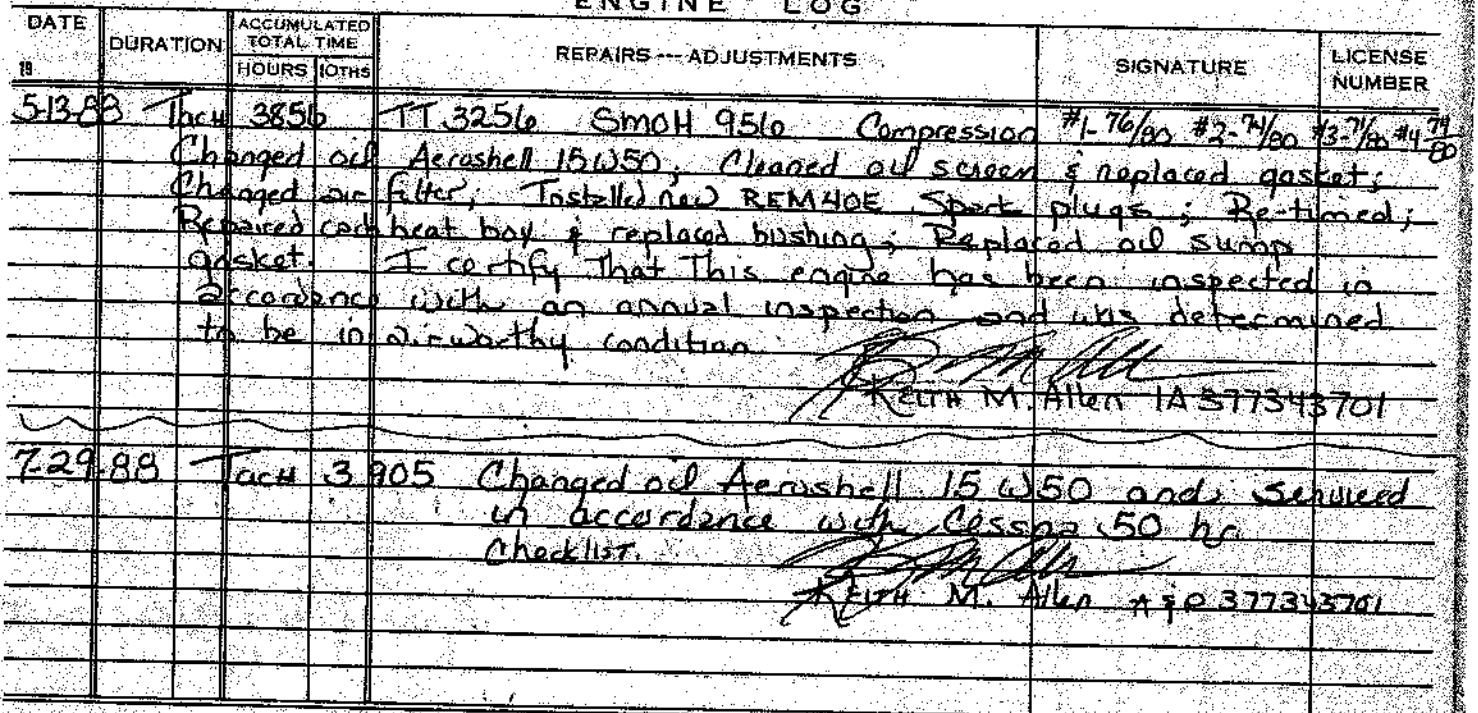 ENGINE LOG
DATE DURATION ACCUMULATED TOTAL TIME REPAIRS --- ADJUSTMENTS SIGNATURE LICENSE NUMBER
19 HOURS 10THS
5-13-88 Tach 3856 TT 3256 SMOH 956 Compression #1-76/80 #2-74/80 #3-71/80 #4-74/80
Changed oil Aeroshell 15W50; Cleaned oil screen & replaced gasket;
Changed air filter; Installed new REM40E Spark plugs; Re-timed;
Repaired carb heat box & replaced bushing; Replaced oil sump
gasket. I certify That This engine has been inspected in
accordance with an annual inspection and was determined
to be in airworthy condition.
Keith M. Allen IA 377343701
7-29-88 Tach 3905 Changed oil Aeroshell 15W50 and serviced
in accordance with Cessna 50 hr.
Checklist.
Keith M. Allen A&P 377343701